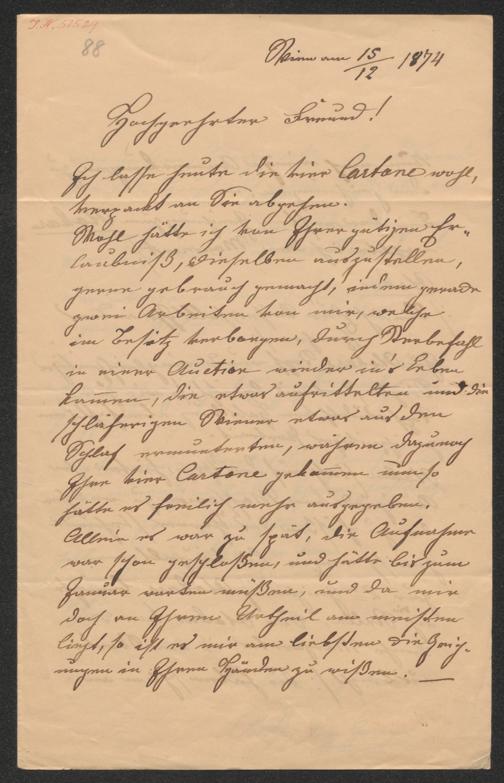 J.N. 51529
88
Wien am 15/12 1874
Hochgeehrter Freund!
Ich lasse heute die vier Cartone wohl,
verpackt an Sie abgehen.
Wohl hätte ich von Ihrer gütigen Er-
laubniß, dieselben auszustellen,
gerne gebrauch gemacht, indem gerade
zwei Arbeiten von mir, welche
im Besitz verborgen, durch
in einer Auction wieder in's Leben
kammen, die etwas aufrittelten und die
schläferigen Wiener etwas aus den
Schlaf ermunterten, wären dazu noch
Ihre vier Cartone gekommen umso
hätte es freilich mehr ausgegeben.
Allein es war zu spät, die Aufnahme
war schon geschloßen, und hätte bis zum
Januar warten müßen, und da mir
doch an Ihrem Urtheil am meisten
liegt, so ist es mir am liebsten die Zeich-
nungen in Ihren Händen zu wißen. —